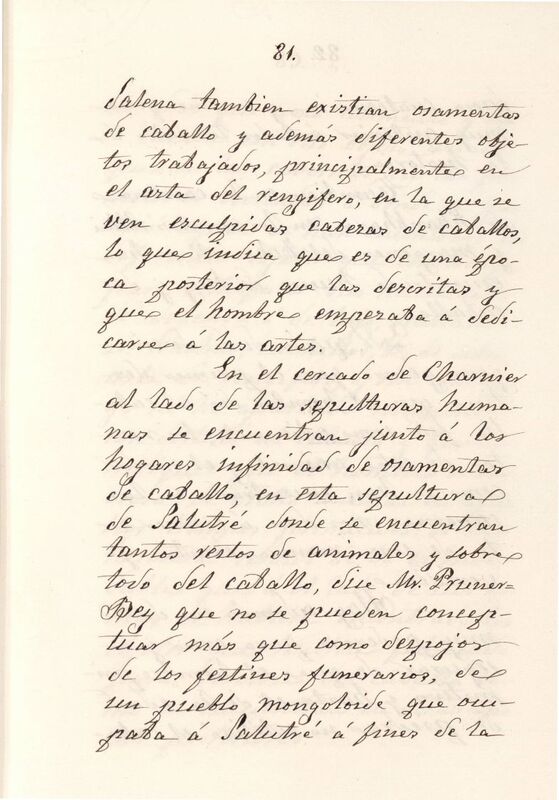 81.
Salena tambien existian osamentas
de caballo y además diferentes obje-
tos trabajados, principalmente en
el asta del rengifero, en la que se
ven esculpidas cabezas de caballos,
lo que indica que es de una épo-
ca posterior que las descritas y
que el hombre empezaba á dedi-
carse á las artes.
En el cercado de Charnier
al lado de las sepulturas huma-
nas se encuentran junto á los
hogares infinidad de osamentas
de caballo, en esta sepultura
de Salutré donde se encuentran
tantos restos de animales y sobre
todo del caballo, dice Mr. Pruner-
Bey que no se pueden concep-
tuar más que como despojos
de los festines funerarios, de
un pueblo mongoloide que ocu-
paba á Salutré á fines de la